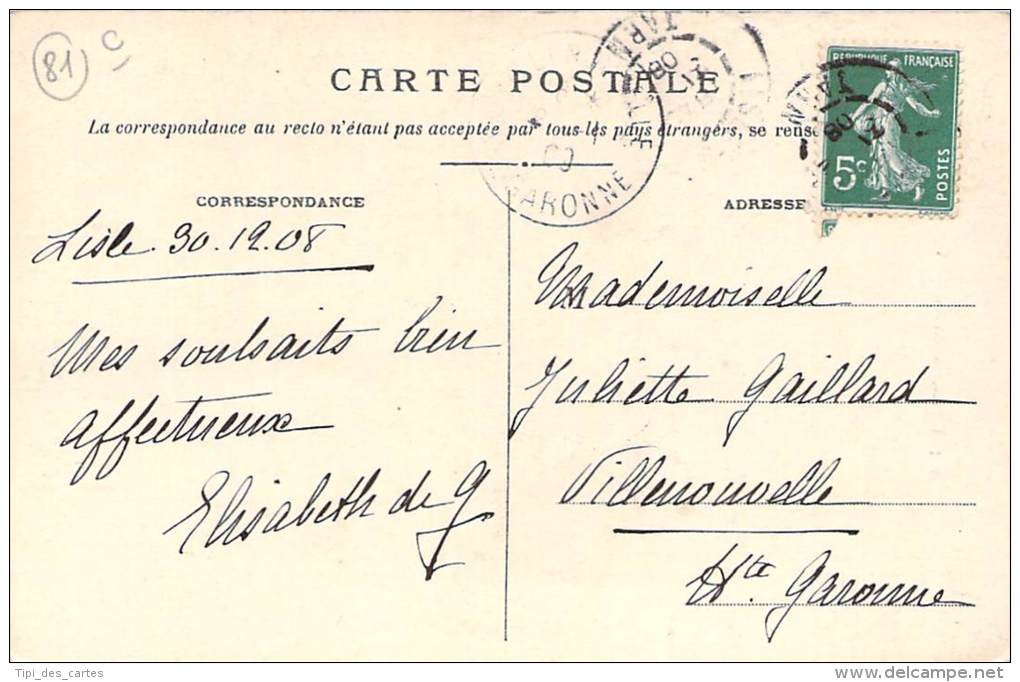 81 C
CARTE POSTALE
La correspondance au recto n'étant pas acceptée par tous les pays étrangers, se rense
CORRESPONDANCE
ADRESSE
Lisle 30.12.08
Mes souhaits bien
affectueux
Elisabeth de G
Mademoiselle
Juliette Gaillard
Villenouvelle
Hte Garonne
RÉPUBLIQUE FRANÇAISE
5c
POSTES
TARN
08
GARONNE
TARN
08
Tipi_des_cartes
delcampe.net